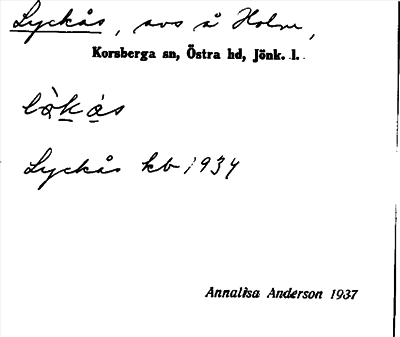 Lyckås, avs å Holm,
Korsberga sn, Östra hd, Jönk. l.
lò̀kås
Lyckås kb 1934
Annalisa Anderson 1937